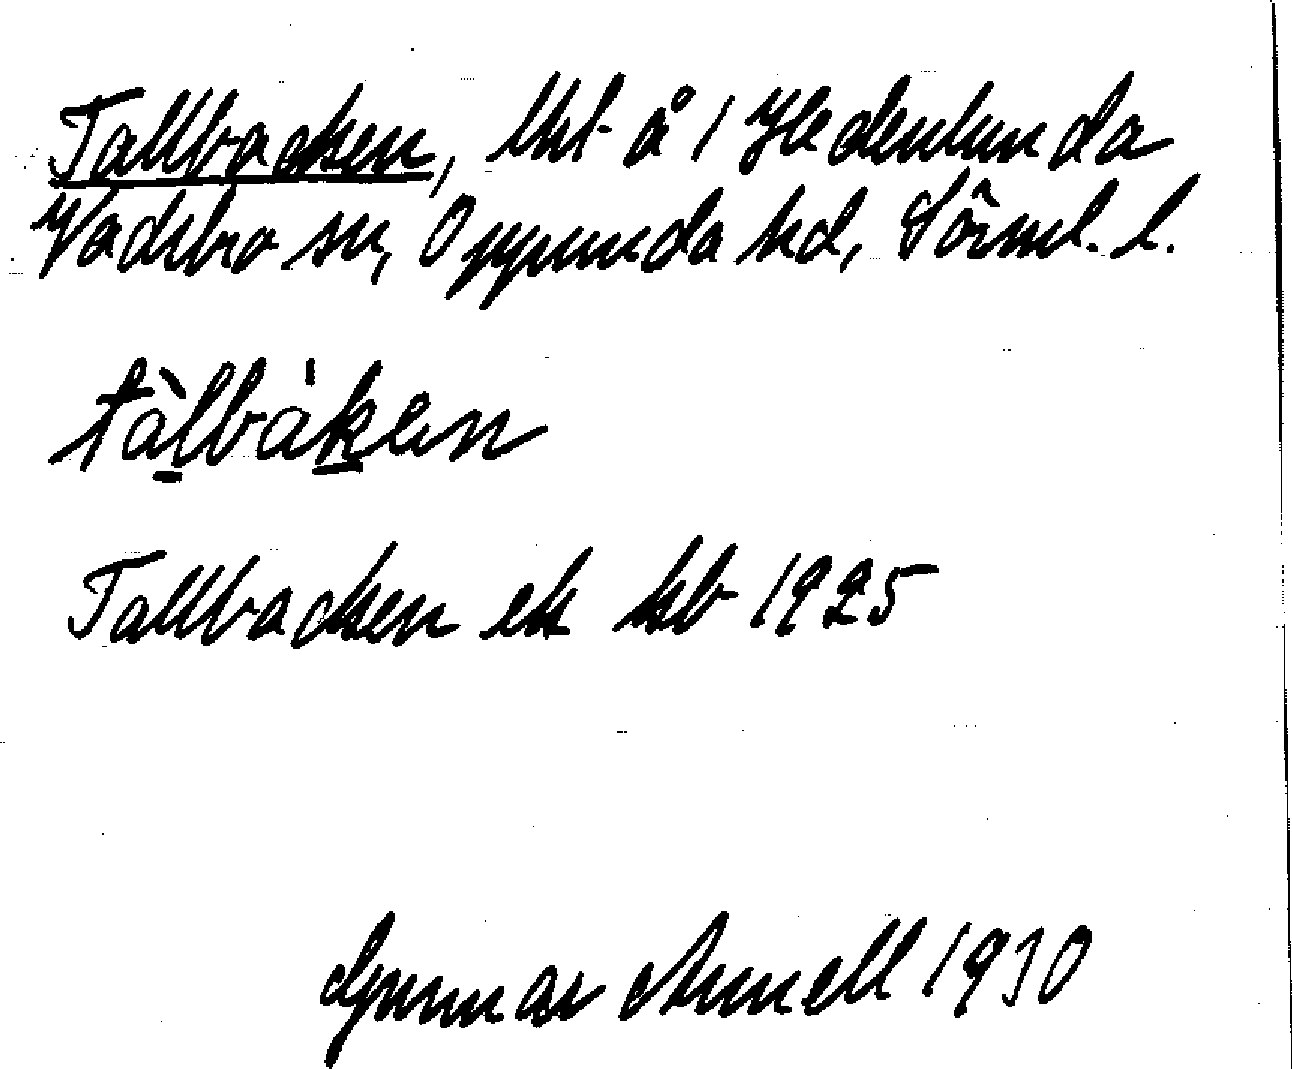 Tallbacken, lht å 1 Hedenlunda
Vadsbro sn, Oppunda hd, Sörml. l.
tàlbák̲en
Tallbacken ek kb 1925
Gunnar Arnell 1930